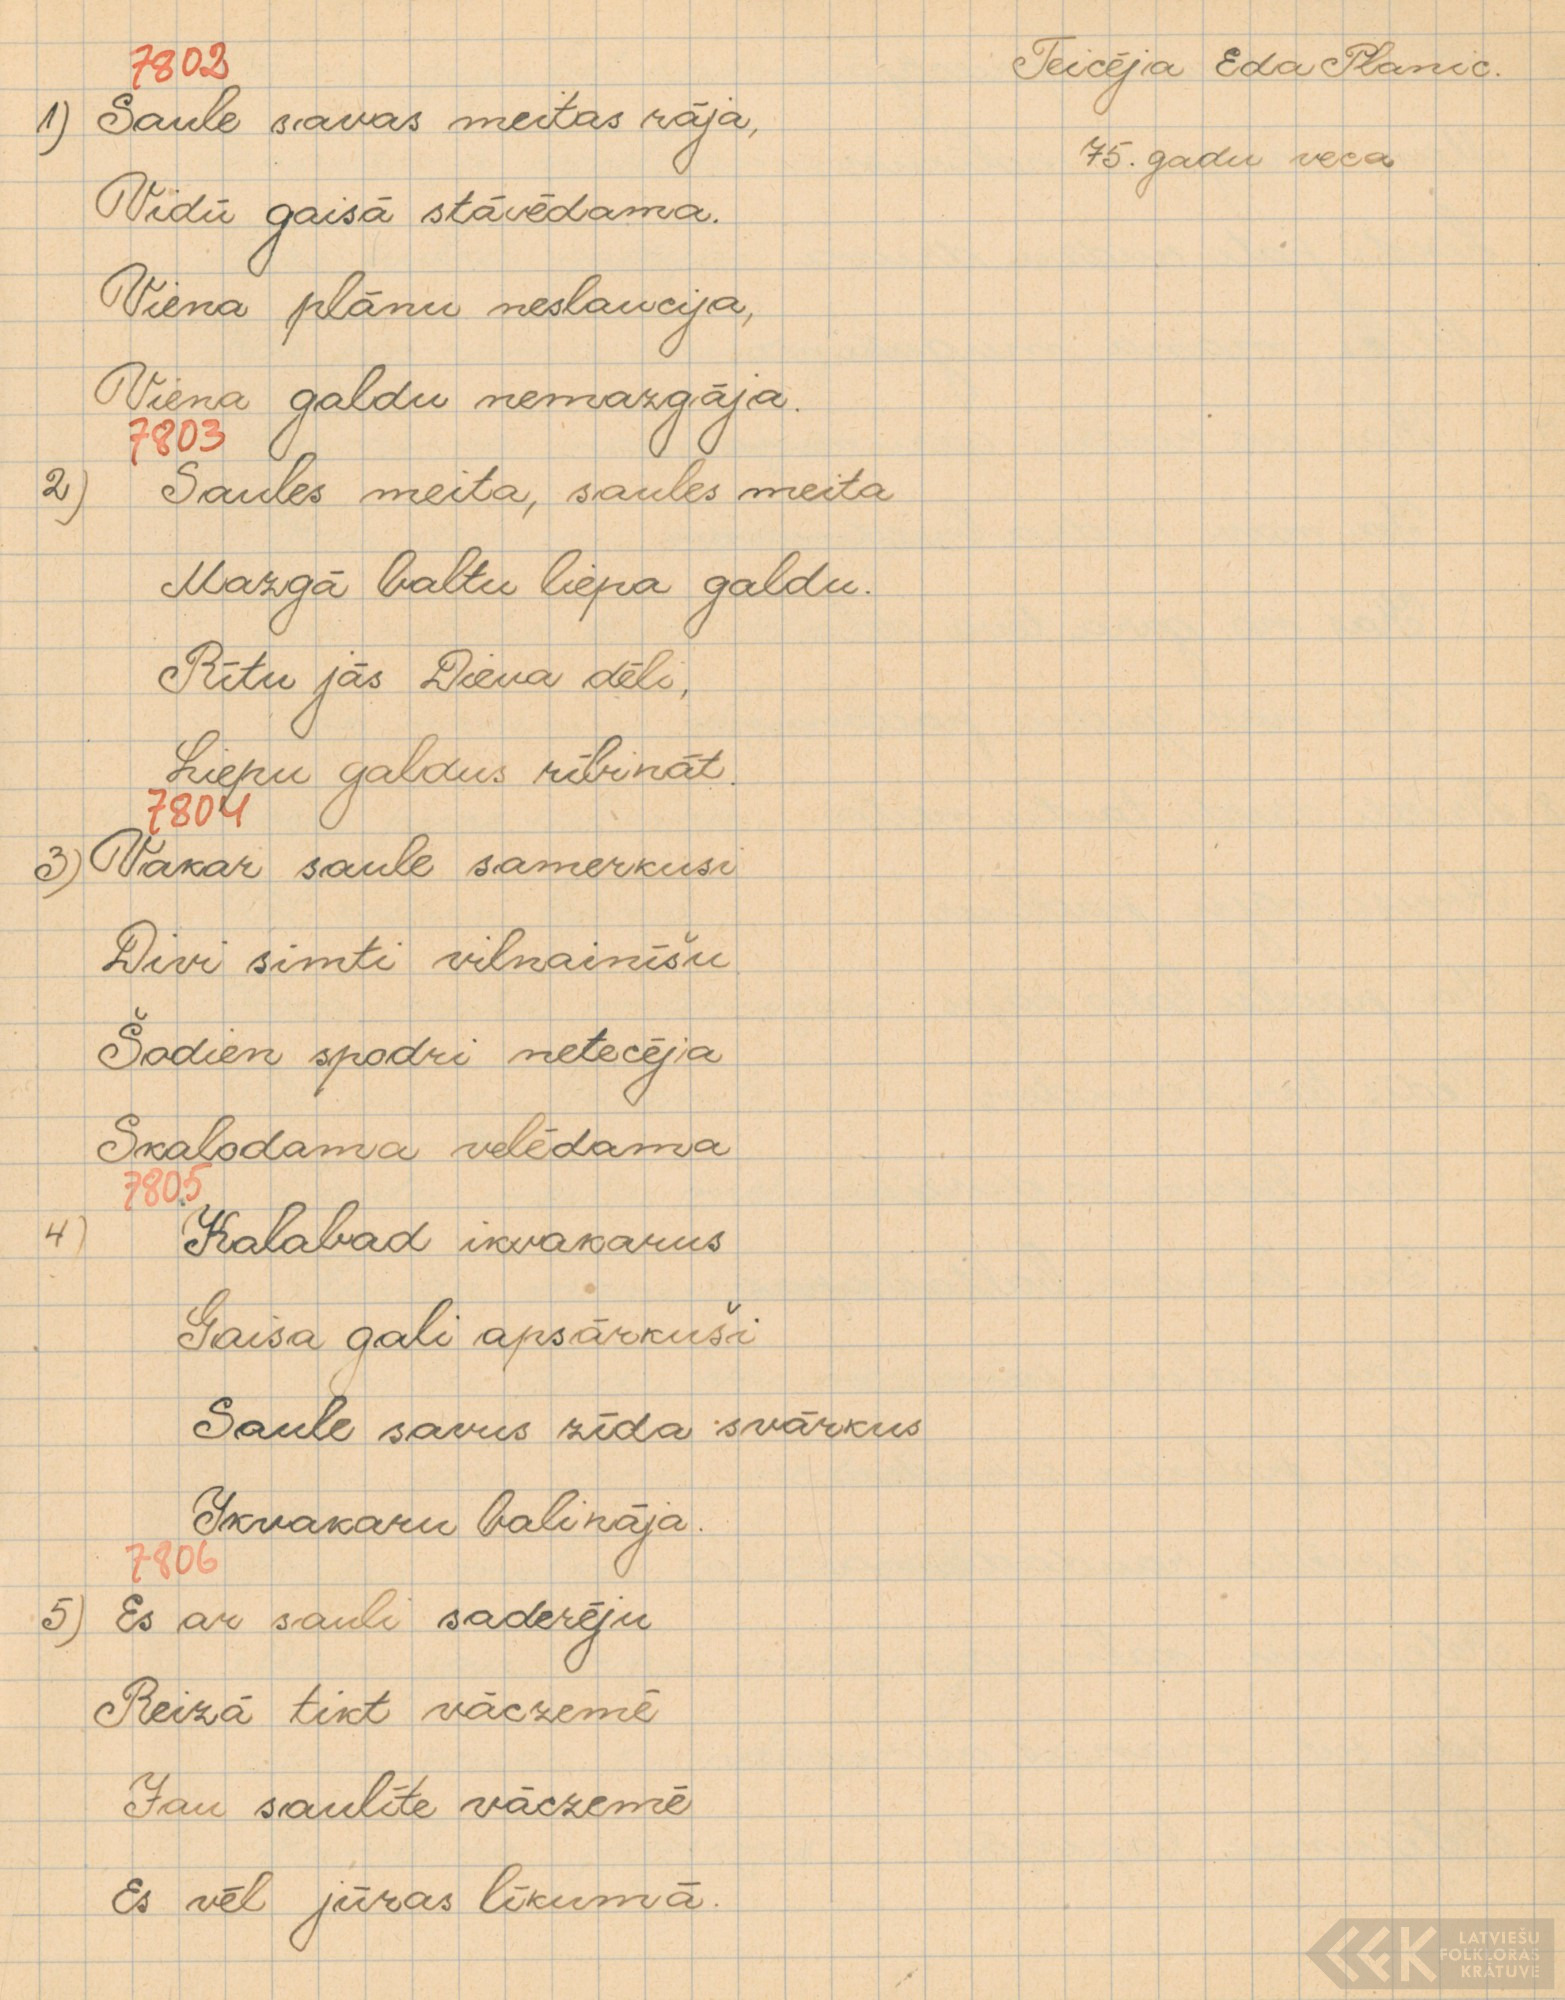 7802
Teicēja Eda Planic.
1) Saule savas meitas rāja,
75. gadu veca
Vidū gaisā stāvēdama.
Viena plānu neslaucija,
Viena galdu nemazgāja.
7803
2) Saules meita, saules meita
Mazgā baltu liepa galdu.
Rītu jās Dieva dēli,
Liepu galdus rībināt.
7804
3) Vakar saule samerkusi
Divi simti vilnainīšu
Šodien spodri netecēja
Skalodama velēdama
7805
4) Kalabad ikvakarus
Gaisa gali apsārkuši
Saule savus zīda svārkus
Ikvakaru balināja.
7806
5) Es ar sauli saderēju
Reizā tikt vāczemē
Jau saulīte vāczemē
Es vēl jūras līkumā.
LATVIEŠU
FOLKLORAS
KRĀTUVE